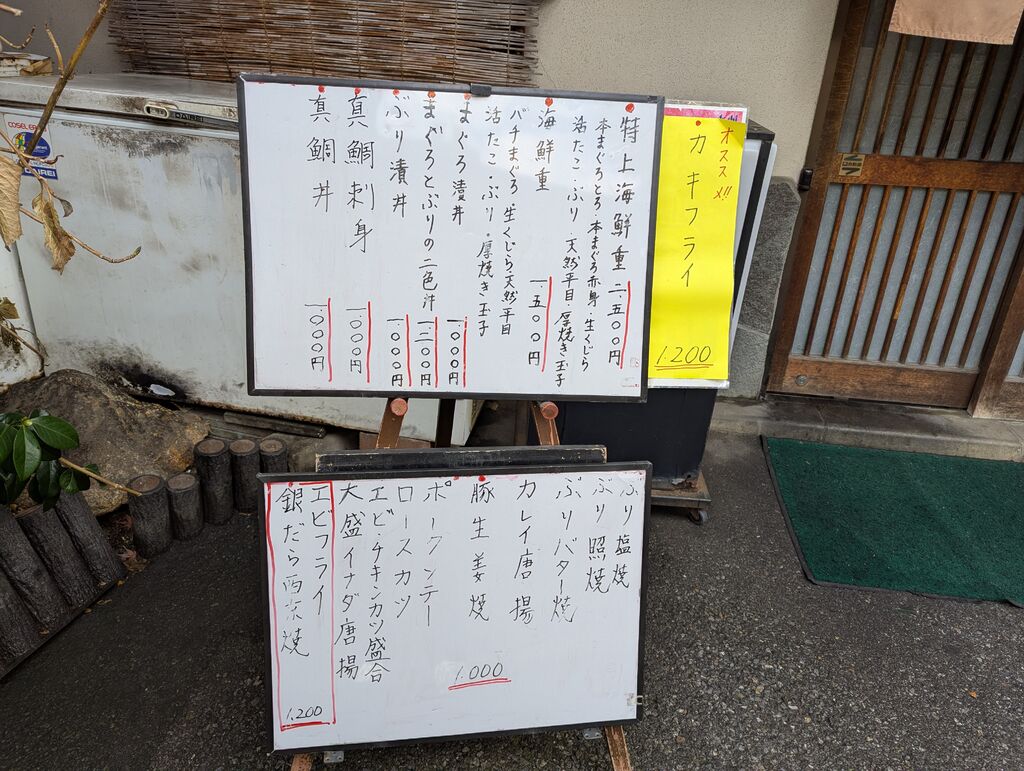 特上海鮮重 二.五〇〇円
本まぐろとろ・本まぐろ赤身・生くじら
活たこ・ぶり・天然平目・厚焼き玉子
海鮮重 一.五〇〇円
バチまぐろ・生くじら天然平目
活たこ・ぶり・厚焼き玉子
まぐろ漬丼 一.〇〇〇円
まぐろとぶりの二色丼 一.二〇〇円
ぶり漬丼 一.〇〇〇円
真鯛刺身 一.〇〇〇円
真鯛丼 一.〇〇〇円
オススメ!!
カキフライ
1.200
ぶり塩焼
ぶり照焼
ぶりバター焼
カレイ唐揚
豚生姜焼
1.000
ポークソテー
ロースカツ
エビ・チキンカツ盛合
大盛イナダ唐揚
エビフライ
銀だら西京焼
1.200